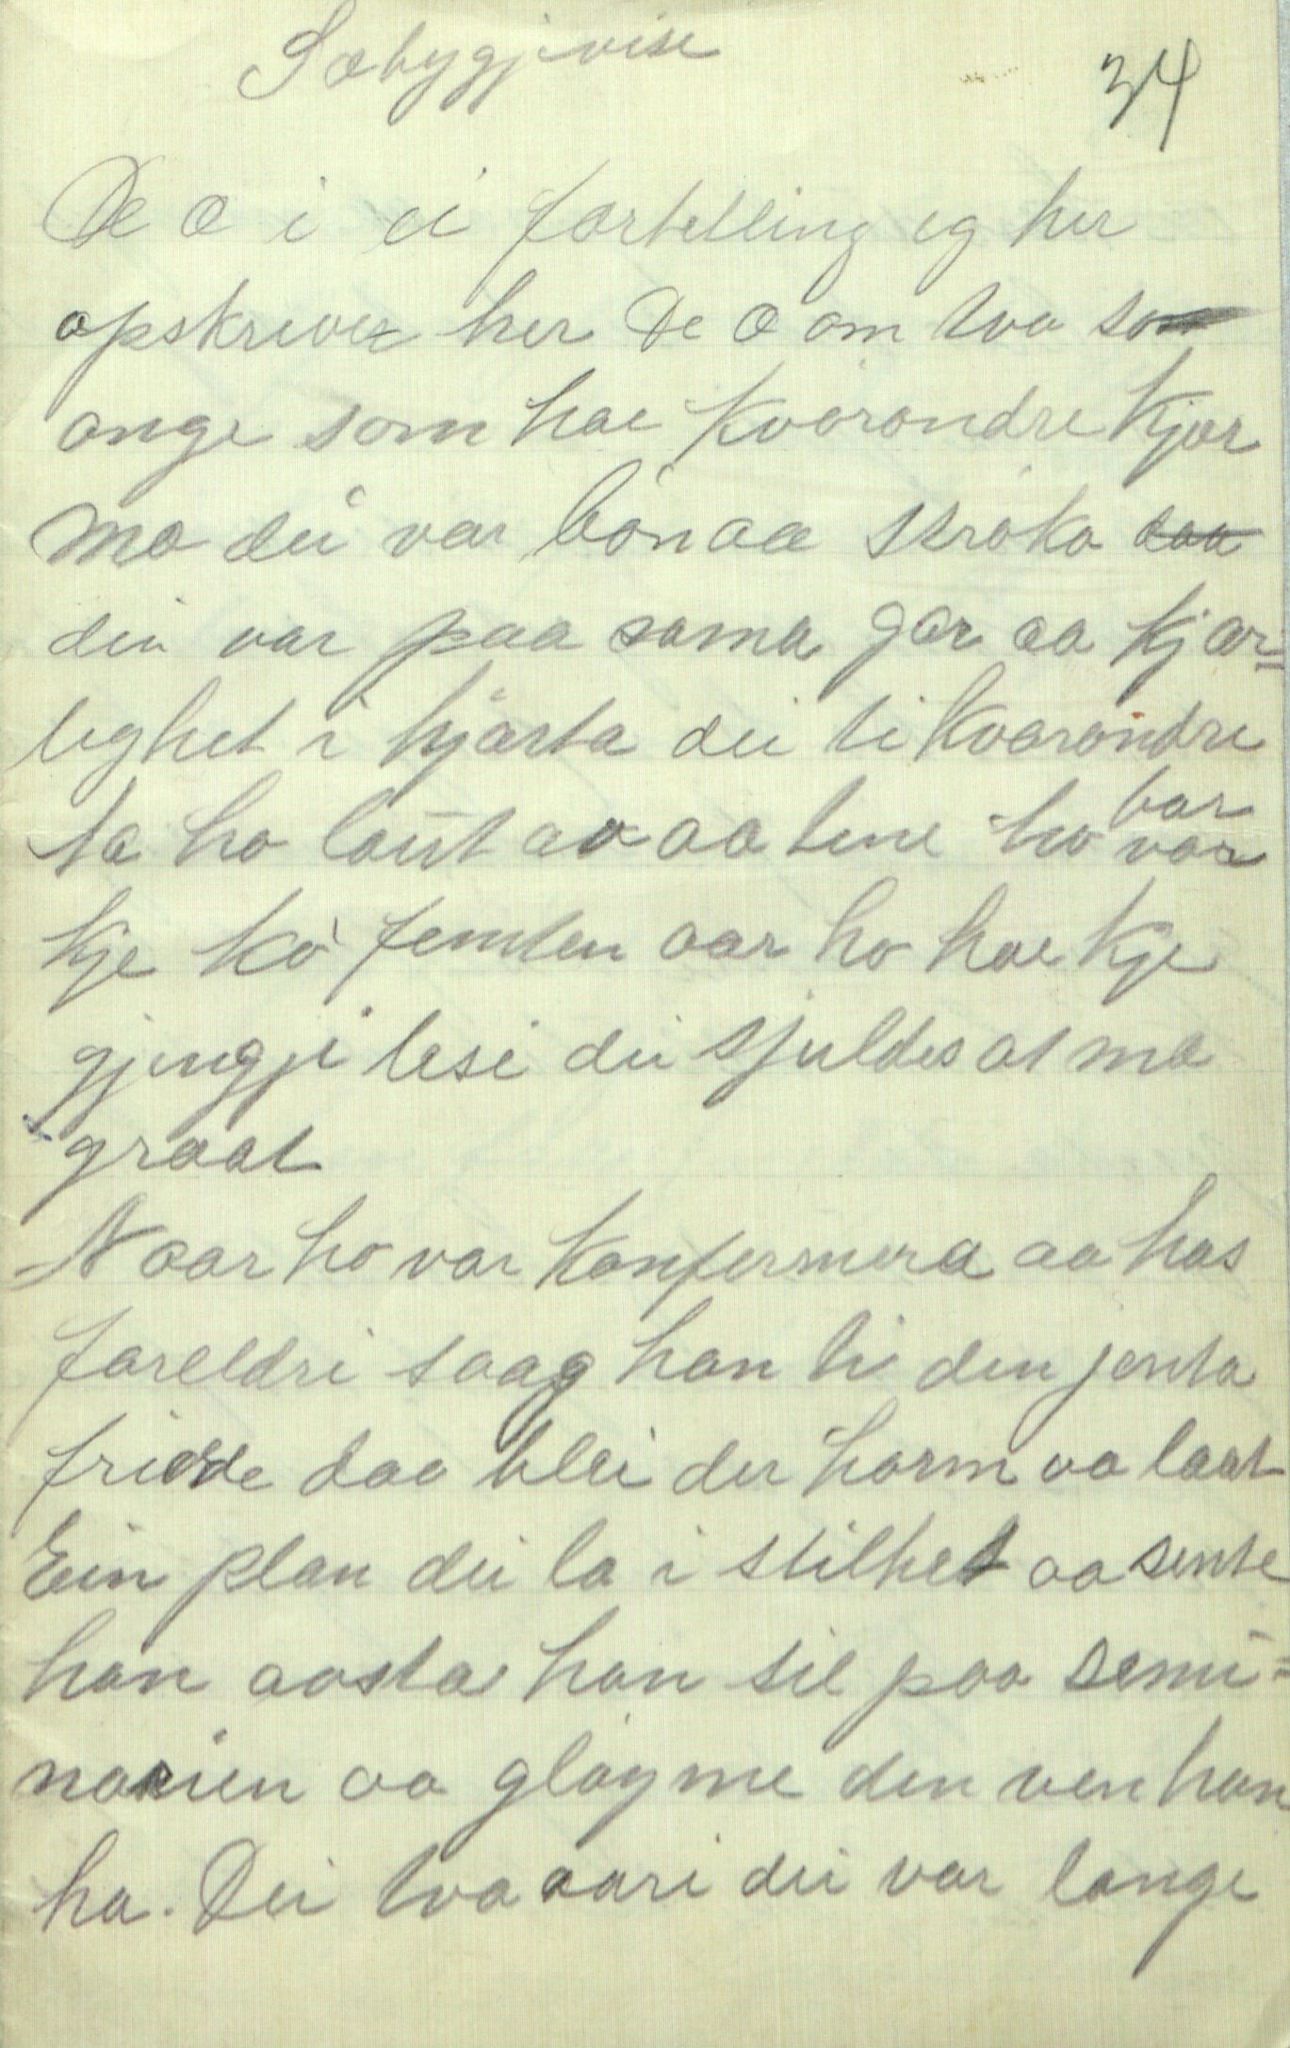 Sæbygjivise
34
De æ i ei fortelling eg her
opskriver her De æ om tvo som
onge som hae kvorondre kjær
mæ dei var bonaa stroka daa
dei var paa sama gar aa kjær=
leghet i hjarta dei ti kvorondre
Ne ho laut av aa tene ho var bar
kje ko femten aar ho hae kje
gjengji lese dei skjuldes at mæ
graat
Naar ho var konfermera aa has
foreldri saag han ti den jenta
friede daa blei der harm aa laat
Ein plan dei la i stilhet aa sente
han aasta han sil paa semi=
narien aa gløyme den ven han
ha. Dei tvo aari dei var lange